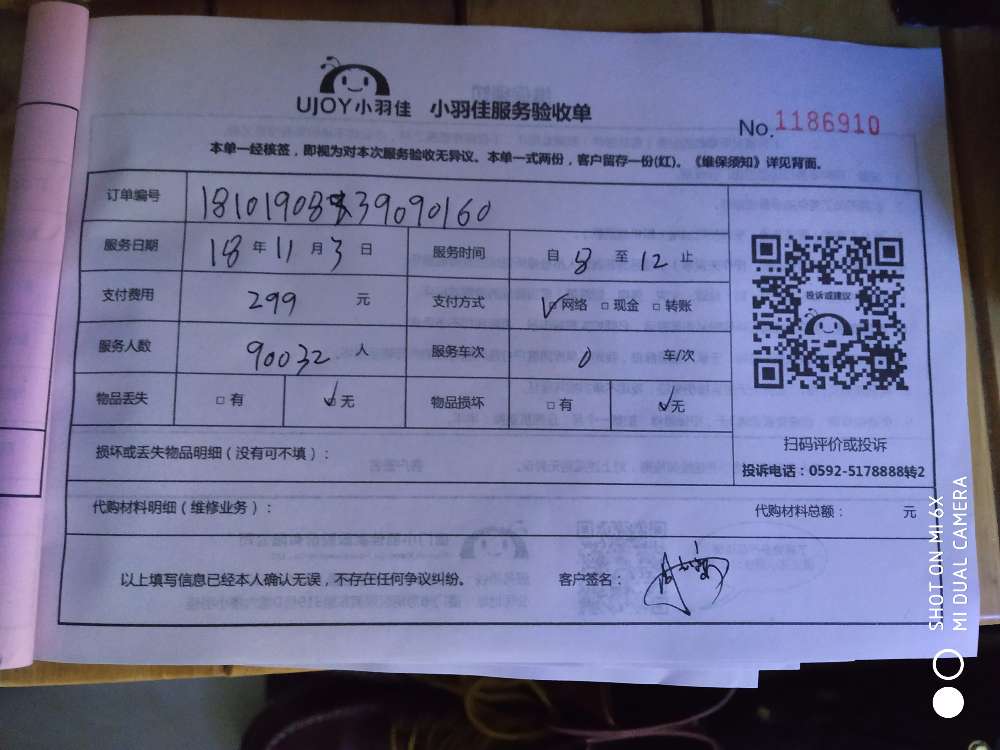 UJOY小羽佳 小羽佳服务验收单
No.1186910
本单一经核签，即视为对本次服务验收无异议。本单一式两份，客户留存一份(红)。《维保须知》详见背面。
订单编号 18101908 39090160
服务日期 18 年 11 月 3 日 服务时间 自 8 至 12 止
支付费用 299 元 支付方式 ☑网络 □现金 □转账
投诉或建议
服务人数 90032 人 服务车次 0 车/次
物品丢失 □有 ☑无 物品损坏 □有 ☑无
扫码评价或投诉
损坏或丢失物品明细（没有可不填）：
投诉电话：0592-5178888转2
代购材料明细（维修业务）： 代购材料总额： 元
以上填写信息已经本人确认无误，不存在任何争议纠纷。 客户签名：
SHOT ON MI 6X
MI DUAL CAMERA